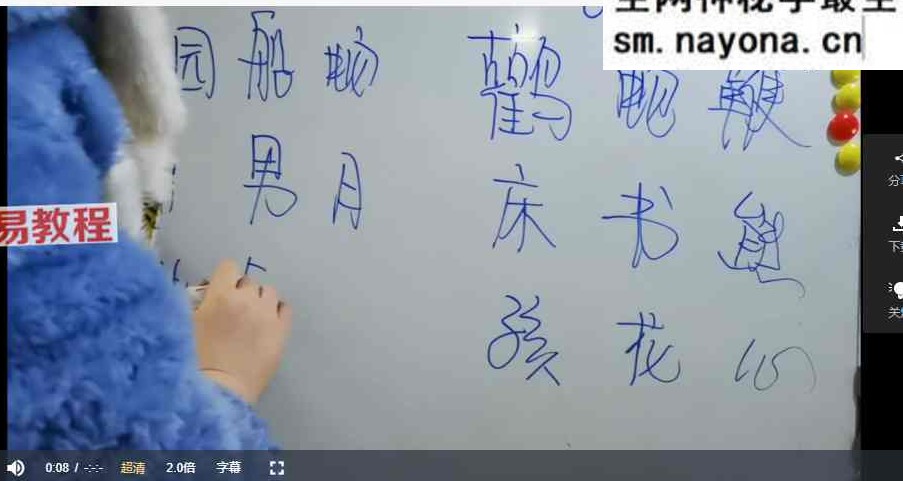 全网神秘学最全
sm.nayona.cn
园 船 物
鹤 鞭
男 月
床 书
孩 花
易教程
分享
下载
关灯
0:08 / -:-:-
超清
2.0倍
字幕